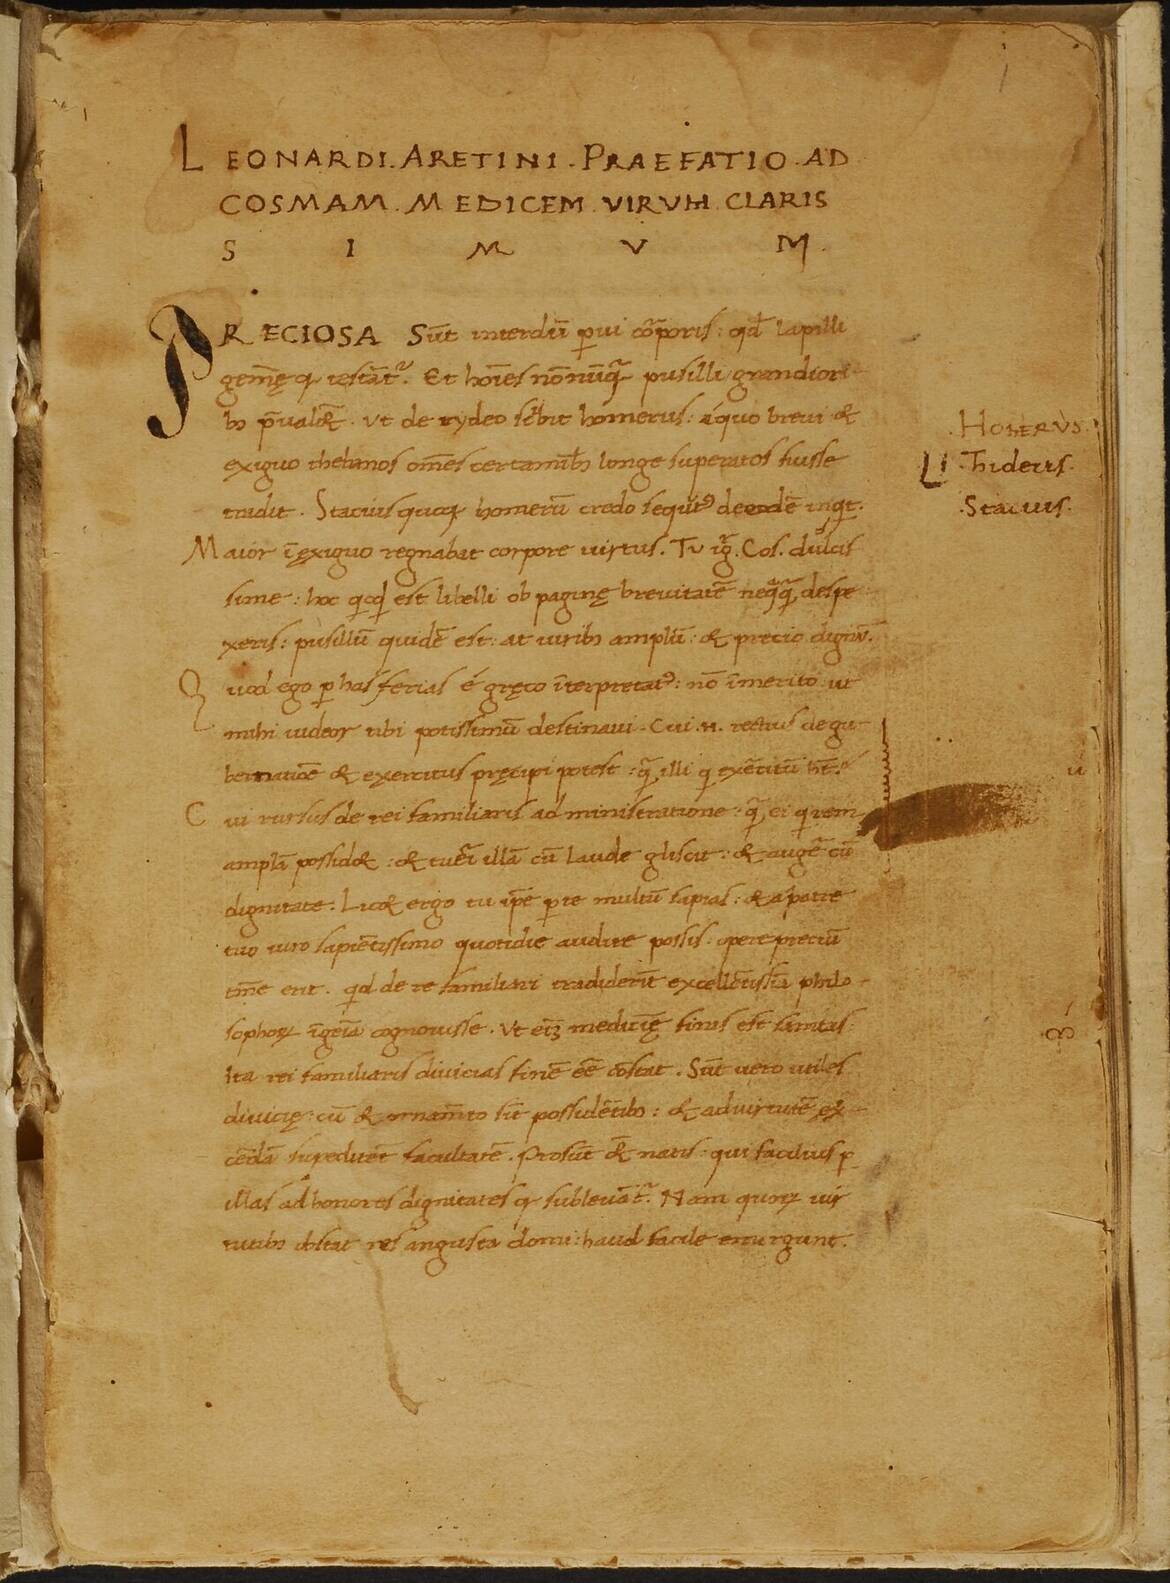 LEONARDI. ARETINI. PRAEFATIO. AD
COSMAM. MEDICEM. VIRVM. CLARIS
S I M V M.
PRECIOSA Sūt interdū ꝑui cōꝑoris: qđ lapilli
gem̄ę qꝫ testāt᷒. Et hoīes nōnūqᷓ pusilli grandiori
bꝫ p̄ualēt. Vt de tydeo sc̄bit homerus: a quo brevi &
exiguo thebanos om̄es certaminibꝫ longe superatos fuisse
tradit. Stacius quoqꝫ homerū credo sequut᷒ de eodē inqt.
Maior ī ęxiguo regnabat corpore uirtus. Tu igr̄. Cos. dulcis
sime: hoc qcqd est libelli ob paginę breuitatē neqqᷓ despe
xeris: pusillū quidē est: at uiribꝫ amplū: & precio dignū.
Quod ego ꝑ has ferias é gręco īterpretat᷒: nō īmerito ut
mihi uideor tibi potissimū destinaui. Cui .n. rectius de gu
bernatiōe & exercitus pręcipi potest: qᷓ illi q exercitū ht̄?
Cui rursus de rei familiaris administratione: qᷓ ei q rem
amplā possidet: & tueri illā cū laude gliscit: & augē cū
dignitate. Licet ergo tu ip̄e ꝑ te multū sapias: & a patre
tuo uiro sapiētissimo quotidie audire possis: opere preciū
tm̄e erit. qd de re familiari tradiderūt excellētissīa philo-
sophoꝝ īgeīa cognouisse. Vt eīꝫ medicīę finis est sanitas:
Ita rei familiaris diuicias finē eē cōstat. Sūt uero utiles
diuicię: cū & ornamēto sīt possidētibꝫ: & ad uirtutē ex-
cēdā supeditēt facultatē. Prosūt & natis: qui facilius ꝑ
illas ad honores dignitates qꝫ subleuāt᷒. Nam quoꝝ uir
tutibꝫ obstat res angusta domi: haud facile emurgunt.
. HOMERVS.
. Thideus.
. Stacius.